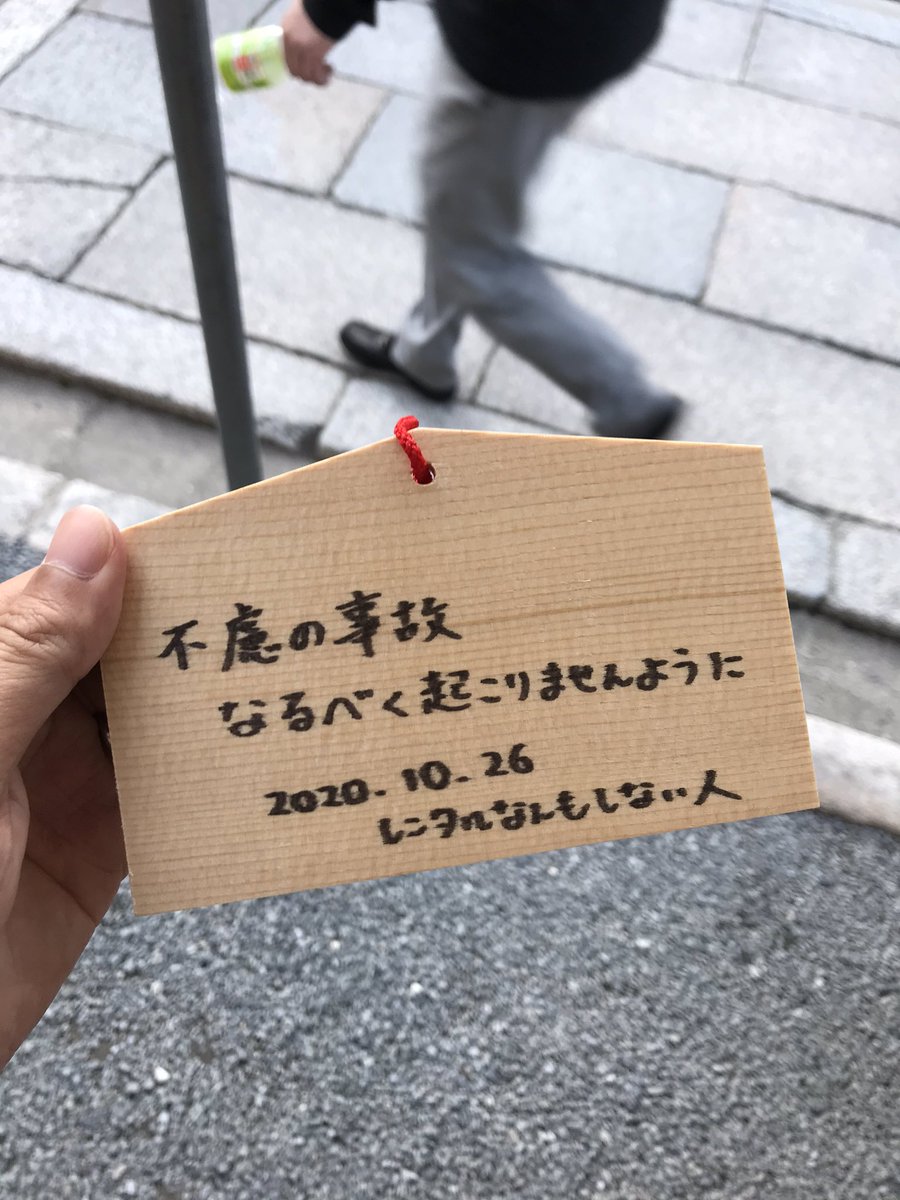 不慮の事故
なるべく起こりませんように
2020.10.26
レンタルなんもしない人